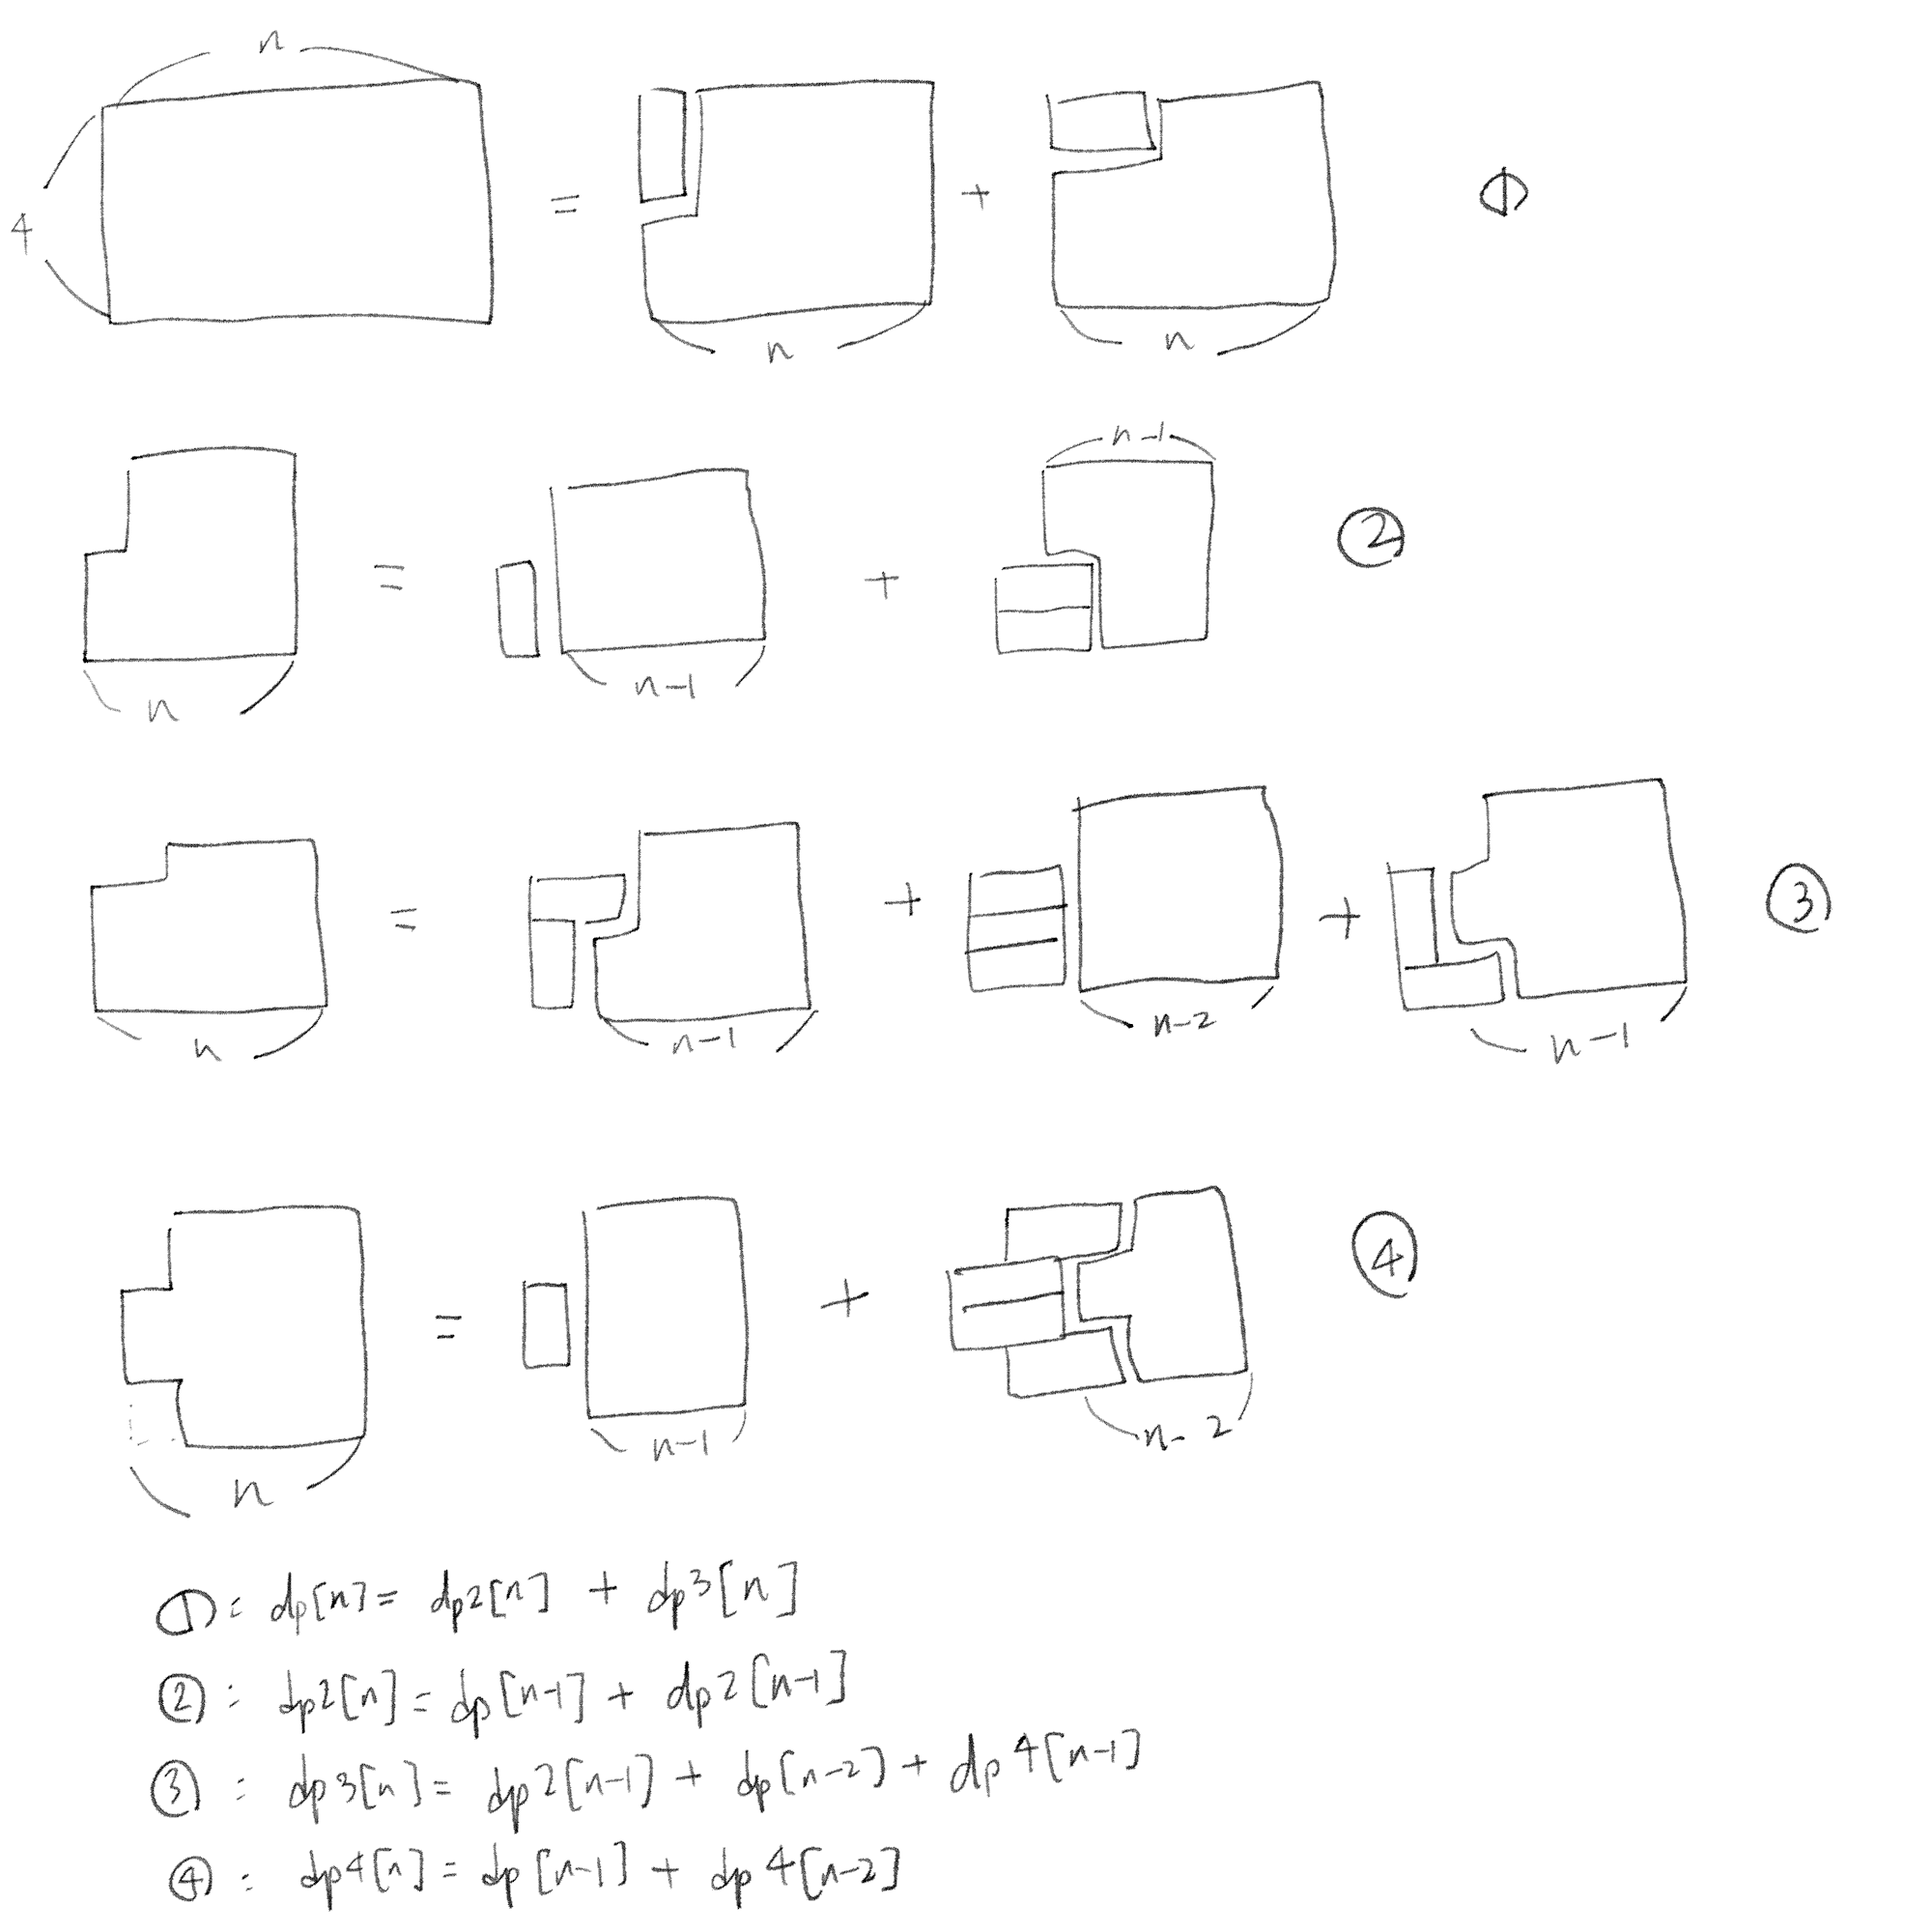 n
4
=
+
①
n
n
n-1
=
+
②
n
n-1
=
+
+
③
n
n-1
n-2
n-1
=
+
④
n
n-1
n-2
①: dp[n] = dp2[n] + dp3[n]
②: dp2[n] = dp[n-1] + dp2[n-1]
③: dp3[n] = dp2[n-1] + dp[n-2] + dp4[n-1]
④: dp4[n] = dp[n-1] + dp4[n-2]